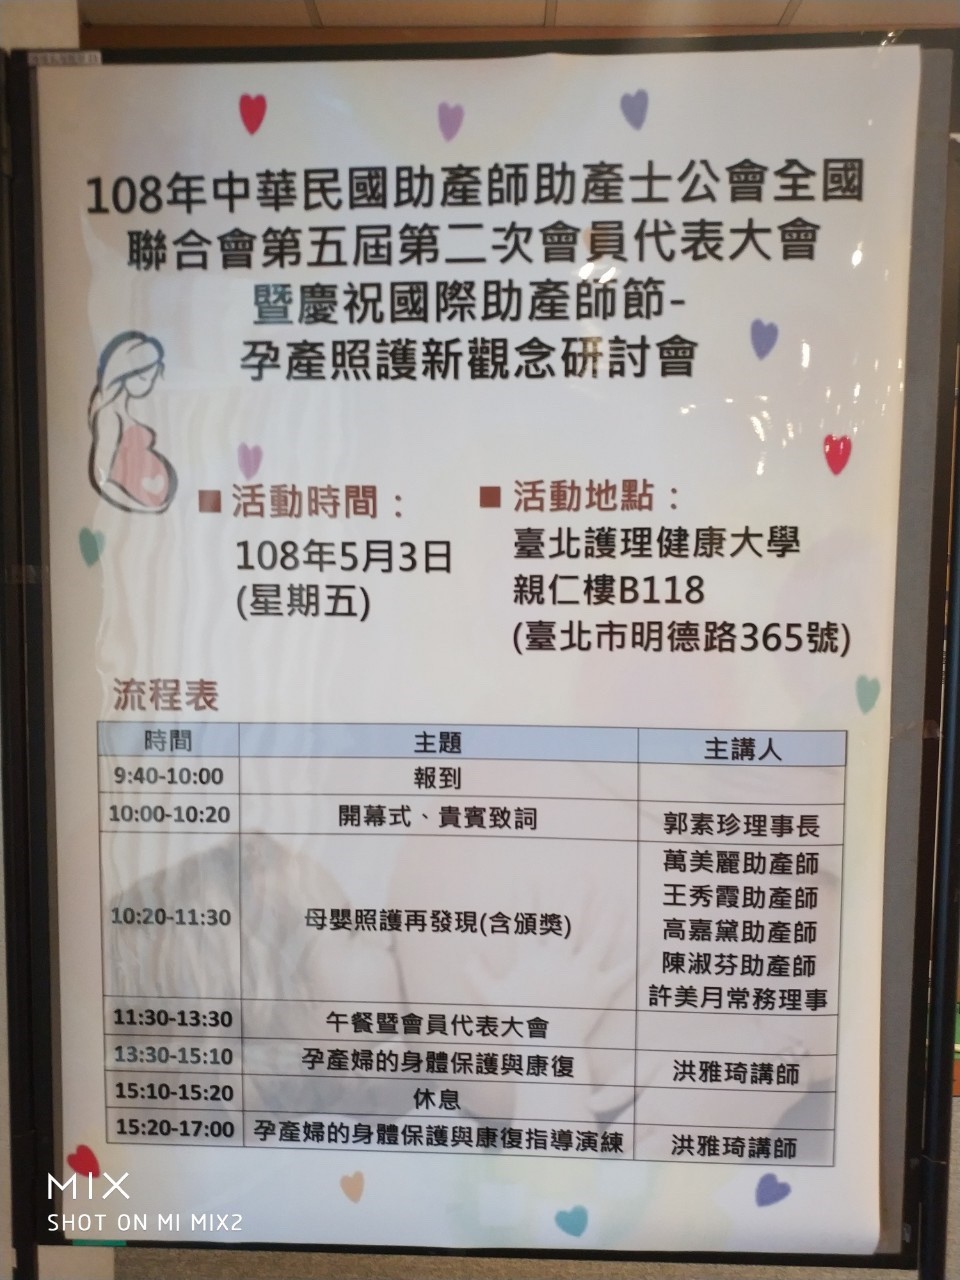 108年中華民國助產師助產士公會全國
聯合會第五屆第二次會員代表大會
暨慶祝國際助產師節-
孕產照護新觀念研討會
■ 活動時間：
108年5月3日
(星期五)
■ 活動地點：
臺北護理健康大學
親仁樓B118
(臺北市明德路365號)
流程表
時間 主題 主講人
9:40-10:00 報到
10:00-10:20 開幕式、貴賓致詞 郭素珍理事長
10:20-11:30 母嬰照護再發現(含頒獎) 萬美麗助產師
王秀霞助產師
高嘉黛助產師
陳淑芬助產師
許美月常務理事
11:30-13:30 午餐暨會員代表大會
13:30-15:10 孕產婦的身體保護與康復 洪雅琦講師
15:10-15:20 休息
15:20-17:00 孕產婦的身體保護與康復指導演練 洪雅琦講師
MIX
SHOT ON MI MIX2